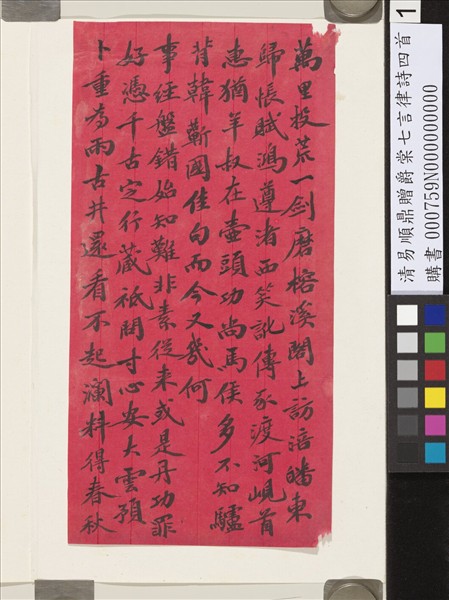 萬里投荒一劍磨榕溪閣上訪涪皤東
歸悵賦鴻遵渚西笑訛傳豕渡河峴首
惠猶羊叔在壺頭功尚馬侯多不知驢
背韓蘄國佳句而今又幾何
事経盤錯始知難非素從来或是丹功罪
好憑千古定行藏祇問寸心安大雲預
卜重為雨古井還看不起瀾料得春秋
清易順鼎贈爵棠七言律詩四首
購書 000759N000000000
1